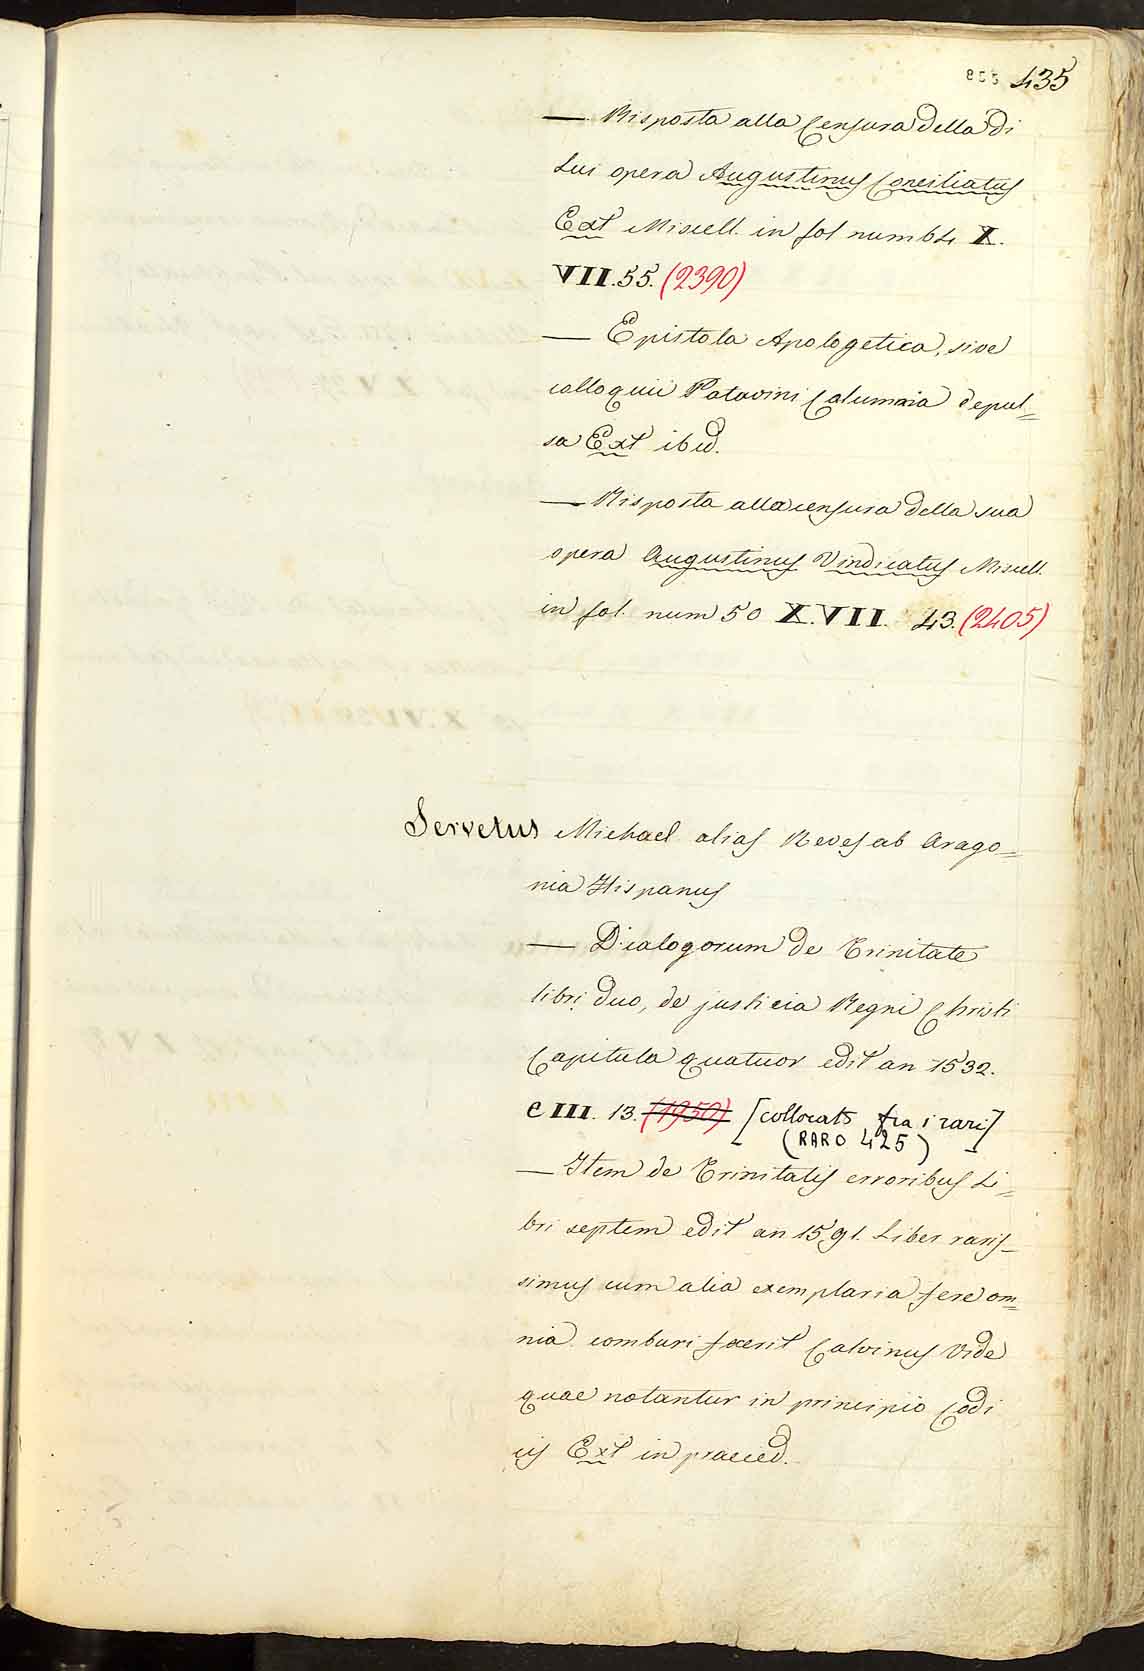 855 435
— Risposta alla Censura della di
Lui opera Augustinus Conciliatus
Ext Miscell. in fol num 64 X.
VII.55. (2390)
— Epistola Apologetica, sive
colloquii Patavini Calumnia depul=
sa Ext ibid.
— Risposta alla censura della sua
opera Augustinus Vindicatus Miscell.
in fol. num 50 X.VII. 43. (2405)
Servetus Michael alias Reves ab Arago=
nia Hispanus
— Dialogorum de Trinitate
libri duo, de justicia Regni Christi
Capitula quatuor edit an 1532.
C III. 13. (1950) [collocato fra i rari]
(RARO 425)
— Item de Trinitatis erroribus Li=
bri septem edit an 1591. Liber raris=
simus cum alia exemplaria fere om=
nia comburi fecerit Calvinus Vide
quae notantur in principio Codi
cis Ext in praeced.